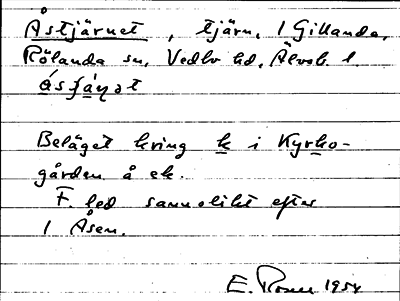 Åstjärnet, tjärn, 1 Gillanda,
Rölanda sn, Vedbo hd, Älvsb. l.
Beläget kring k i Kyrko-
gården å ek.
F. led sannolikt efter
1 Åsen.
E. 1954